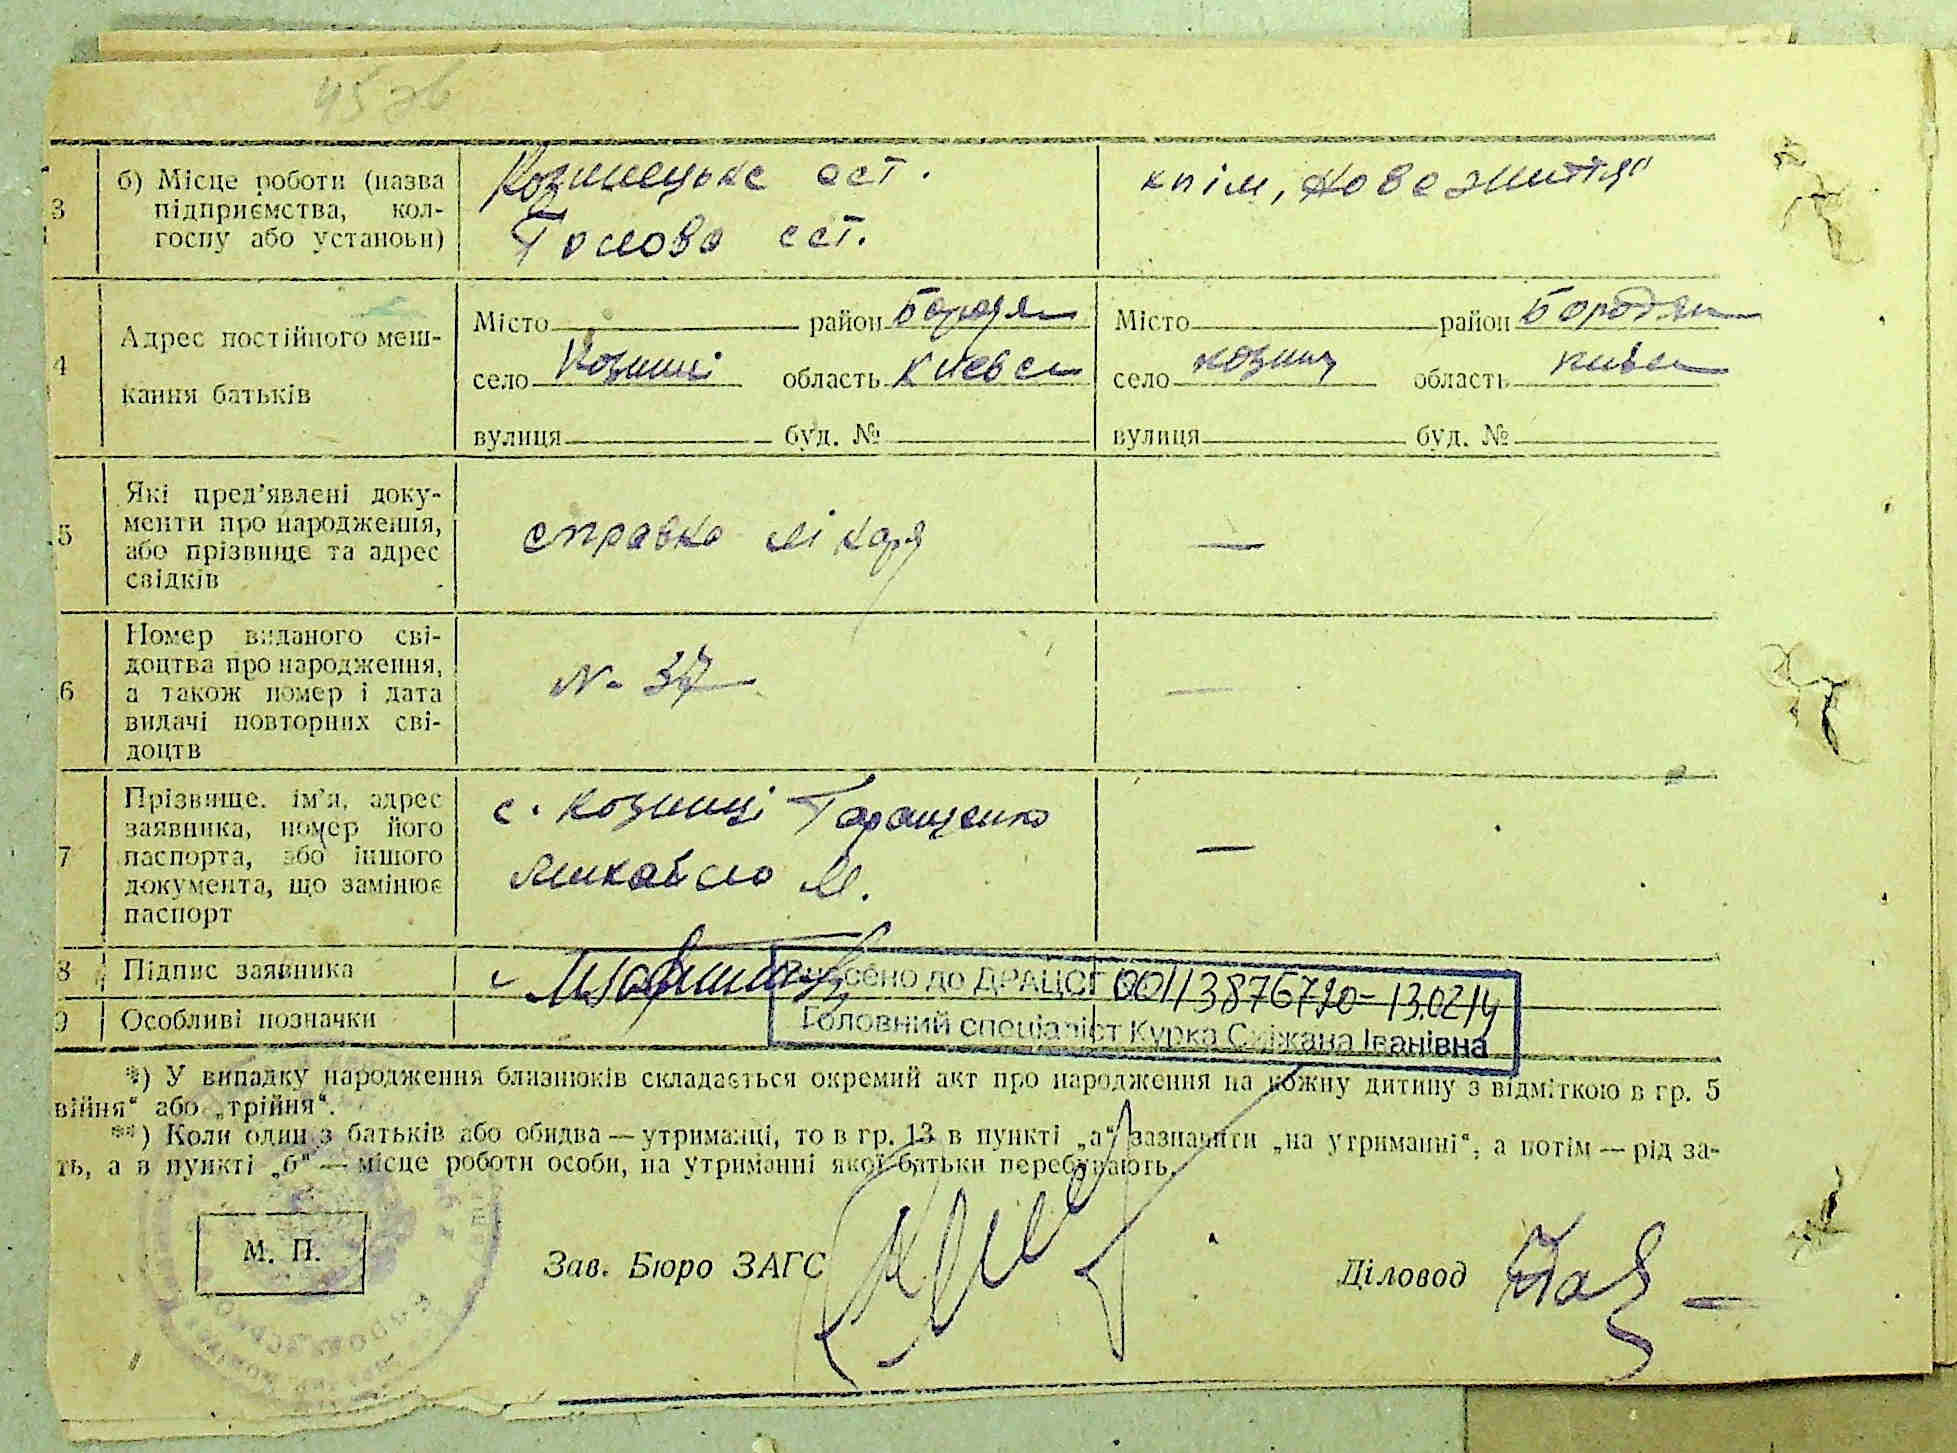 45 зв
3 б) Місце роботи (назва
підприємства, кол-
госпу або установи)
Козинецьке
Голова
"Нове життя"
4 Адрес постійного меш-
кання батьків
Місто район Бородян
село Козинці область Києвс
вулиця буд. №
Місто район Бородян
село Козинц область Київс
вулиця буд. №
5 Які пред'явлені доку-
менти про народження,
або прізвище та адрес
свідків
справка лікаря
—
6 Номер виданого сві-
доцтва про народження,
а також номер і дата
видачі повторних сві-
доцтв
№ 37
—
7 Прізвище, ім'я, адрес
заявника, номер його
паспорта, або іншого
документа, що замінює
паспорт
с. Козинці Таращенко
Михайло М.
—
8 Підпис заявника
9 Особливі позначки
сено до ДРАЦСГ 00113876720 - 13.02.14
Головний спеціаліст Курка Сніжана Іванівна
*) У випадку народження близнюків складається окремий акт про народження на кожну дитину з відміткою в гр. 5
війня" або „трійня".
**) Коли один з батьків або обидва — утриманці, то в гр. 13 в пункті „а" зазначити „на утриманні", а потім — рід за-
ть, а в пункті „б" — місце роботи особи, на утриманні якої батьки перебувають.
М. П.
Зав. Бюро ЗАГС
Діловод